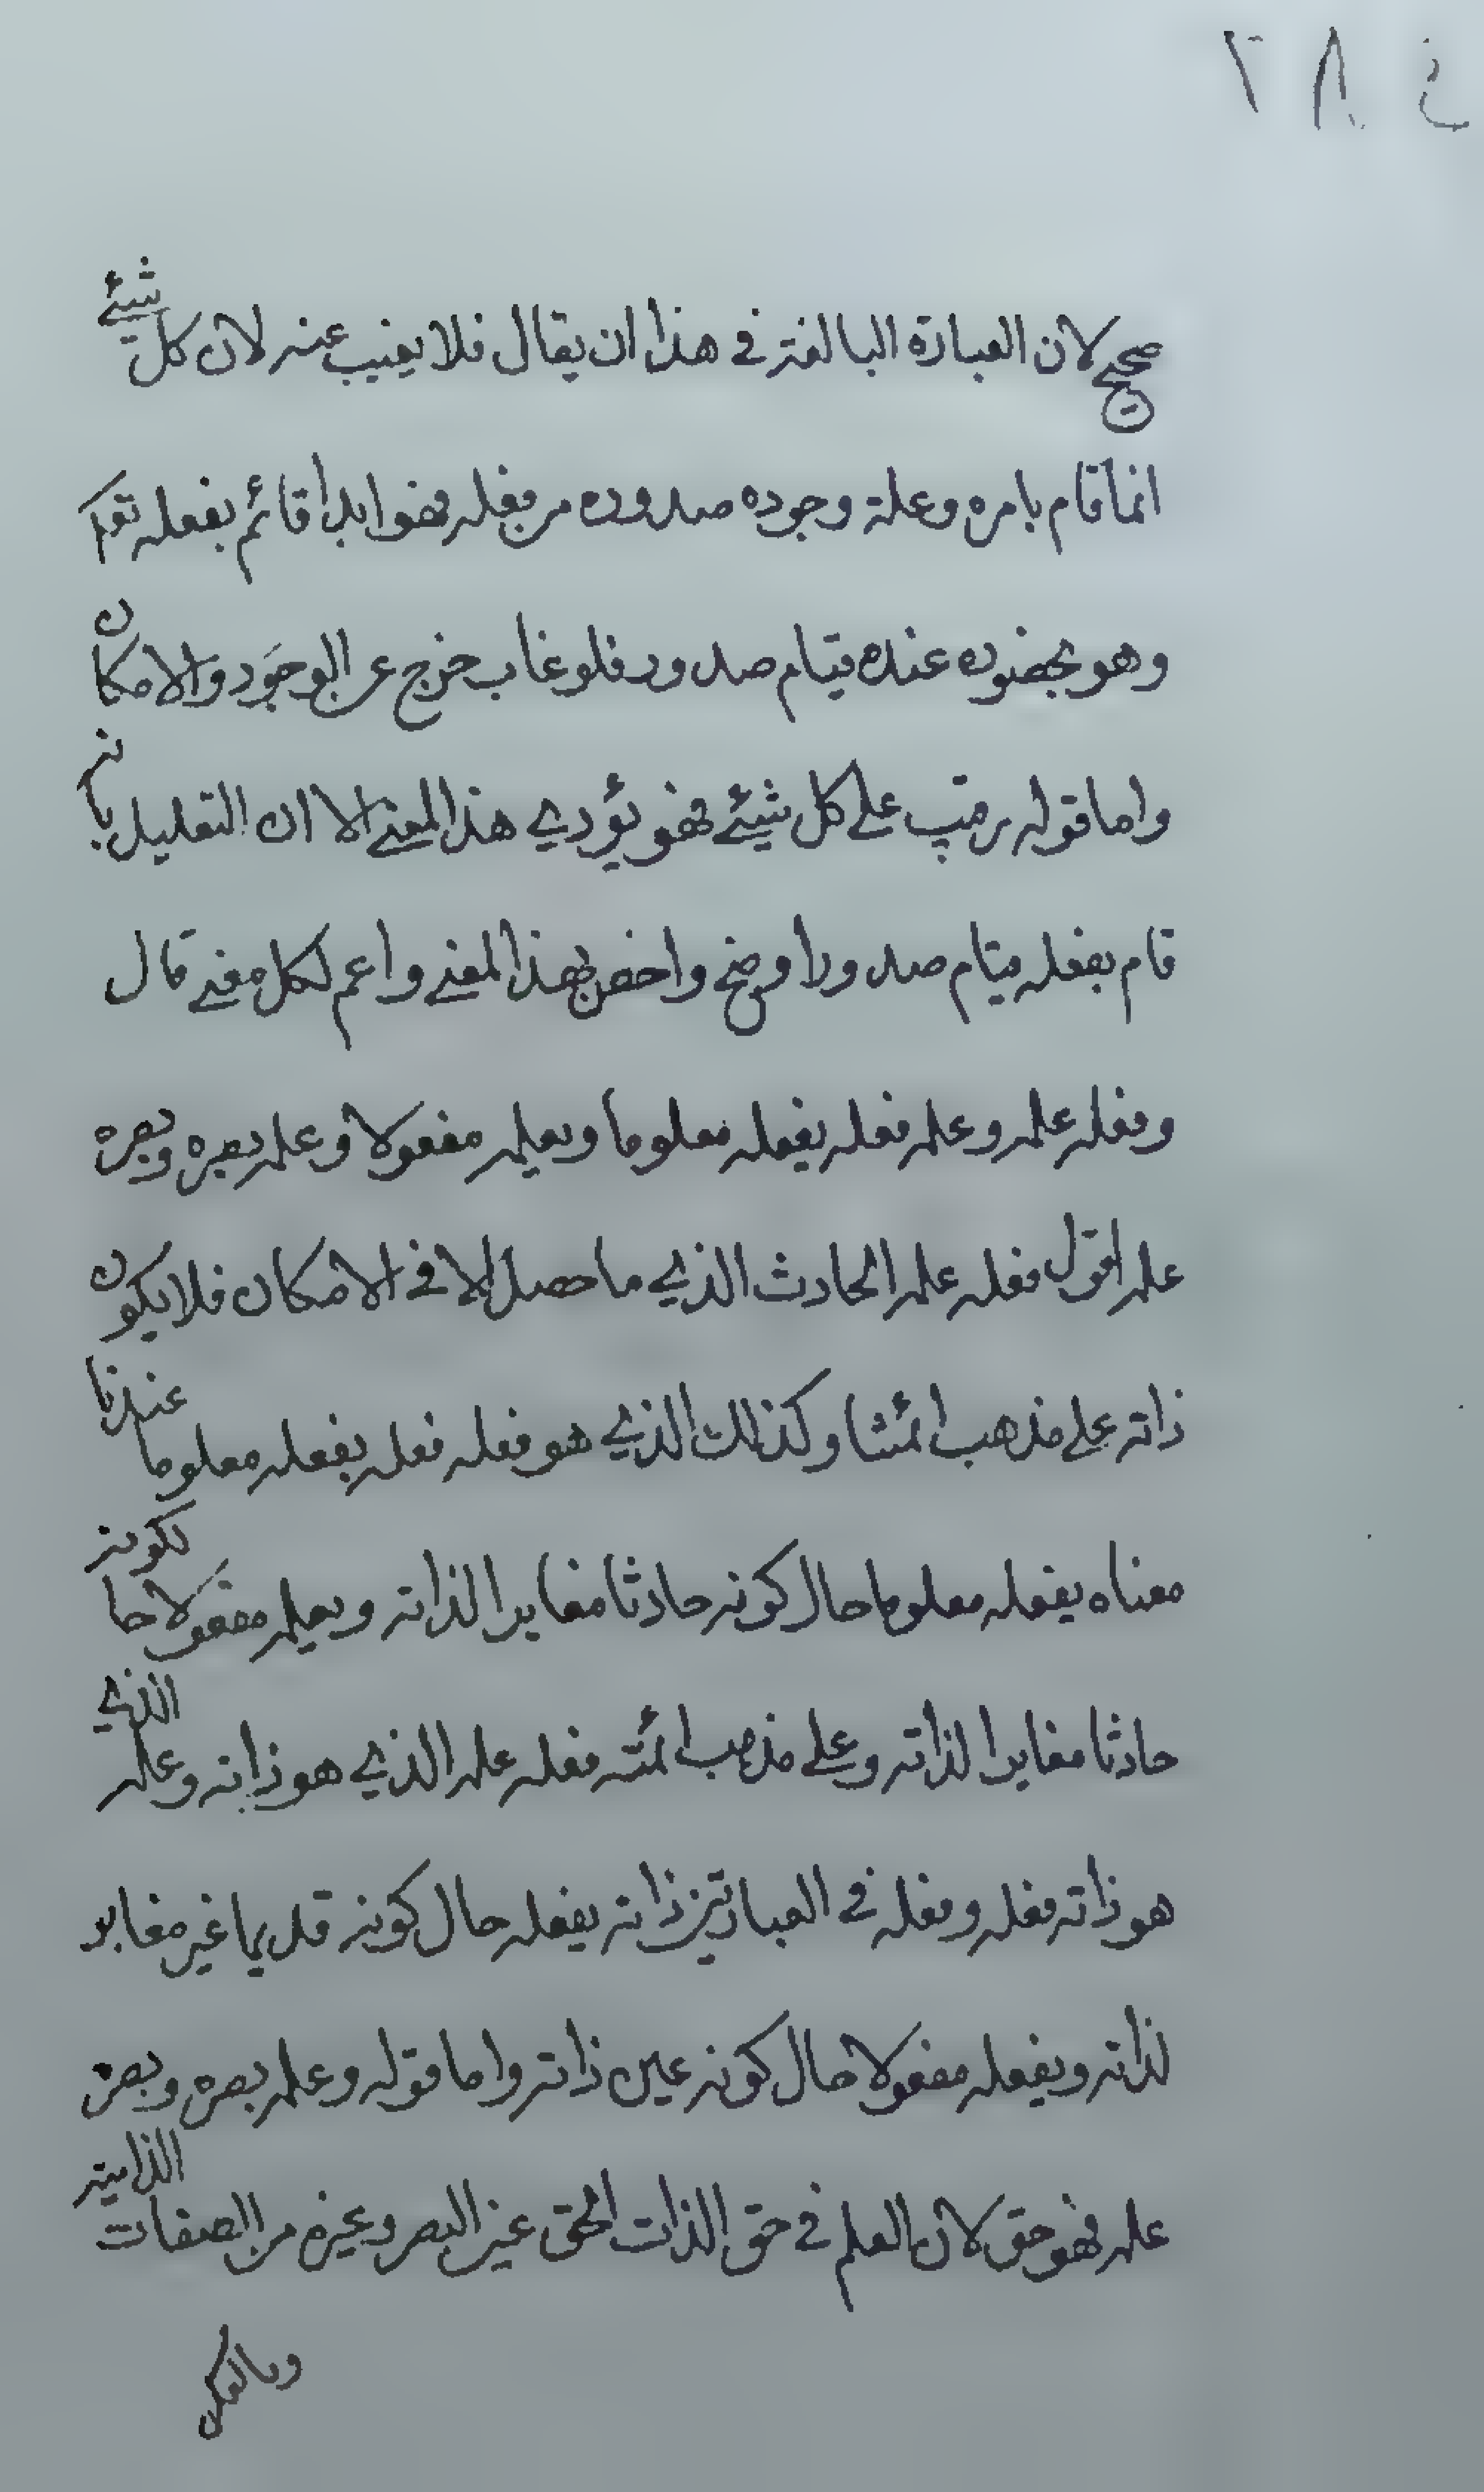 صحيح لان العبارة البالغة في هذا ان يقال فلا يغيب عنه لان كل شيئ
انما قام بامره وعلة وجوده صدوره من فعله فهو ابدا قائم بفعله تعالى
وهو بحضوره عنده قيام صدور فلو غاب خرج عن الوجود والامكان
واما قوله رقيب على كل شيئ فهو يؤدي هذا المعنى الا ان التعليل بانه
قام بفعله قيام صدور اوضح واخص بهذا المعنى واعم لكل معنى قال
وفعله علمه وعلمه فعله يفعله معلوما ويعلمه مفعولا وعلمه بصره وبصره
علمه اقول فعله علمه الحادث الذي ما حصل الا في الامكان فلا يكون
ذاته على مذهب ائمتنا وكذلك الذي هو فعله فعله يفعله معلوما عندنا
معناه يفعله معلوما حال كونه حادثا مغايرا لذاته ويعلمه مفعولا حا لكونه
حادثا مغايرا لذاته وعلى مذهب ائمته فعله علمه الذي هو ذاته وعلمه الذي
هو ذاته فعله وفعله في العبارتين ذاته يفعله حال كونه قديما غير مغاير
لذاته ويفعله مفعولا حال كونه عين ذاته واما قوله وعلمه بصره وبصره
علمه فهو حق لان العلم في حق الذات الحق عين البصر وغيره من الصفات الذاتية
وبالعكس